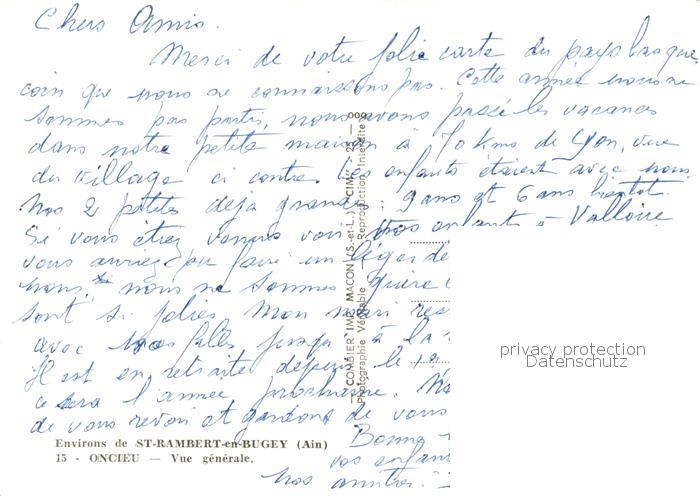 Chers Amis.
Merci de votre jolie carte du pays basque
coin que nous ne connaissons pas. Cette année nous ne
sommes pas partis, nous avons passé les vacances
dans notre petite maison à 70 kms de Lyon, vue
du village ci contre. Les enfants étaient avec nous
nos 2 petites déjà grandes: 9 ans et 6 ans bientot
Si vous étiez venus voir vos enfants à Valloire
vous auriez pu faire un léger dé
nous nous ne sommes guère
sont si jolies Mon mari res
avec nos filles jusqu'à la
Il est en retraite depuis le
ce sera l'année prochaine.
de vous revoir et gardons de vous
Bonne
vos enfan
nos amitiés.
Environs de ST-RAMBERT-en-BUGEY (Ain)
15 - ONCIEU — Vue générale.
COMBIER IMP. MACON (S.-et-L.) "CIM"
Photographie Véritable — Reproduction Interdite
privacy protection
Datenschutz